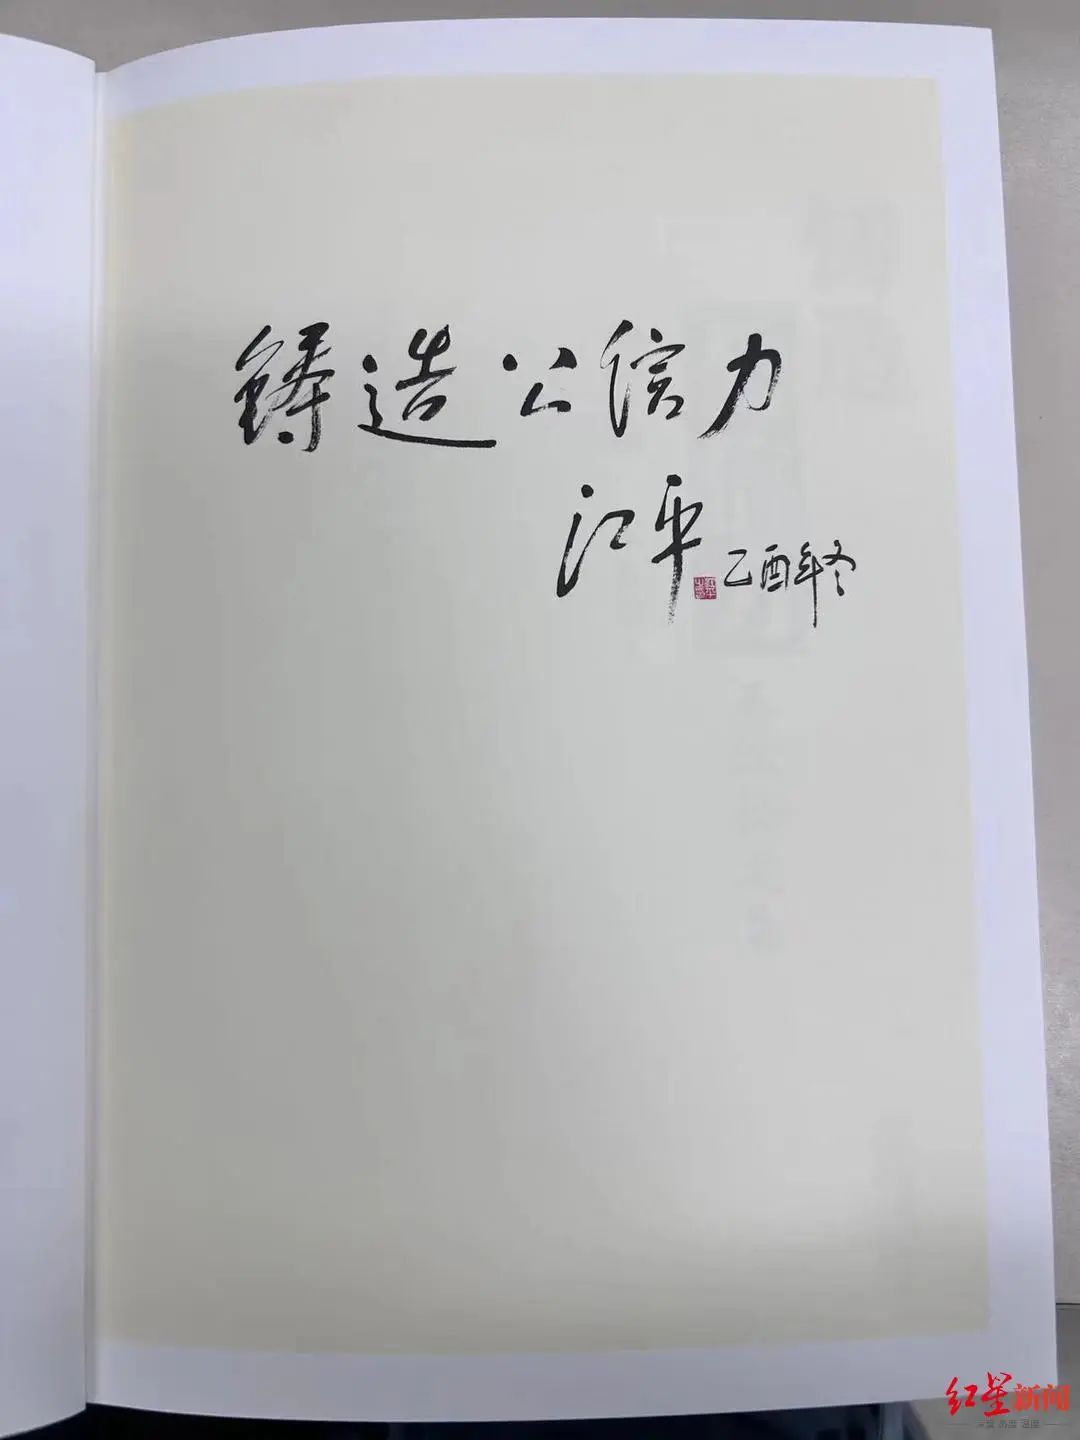 铸造公信力
江平 乙酉年冬
红星新闻